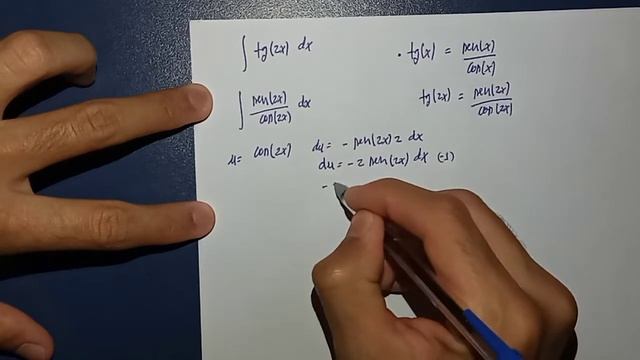 ∫ tg(2x) dx
• tg(x) = sen(x)/cos(x)
∫ sen(2x)/cos(2x) dx
tg(2x) = sen(2x)/cos(2x)
u = cos(2x) du = - sen(2x) 2 dx
du = -2 sen(2x) dx (-1)
-